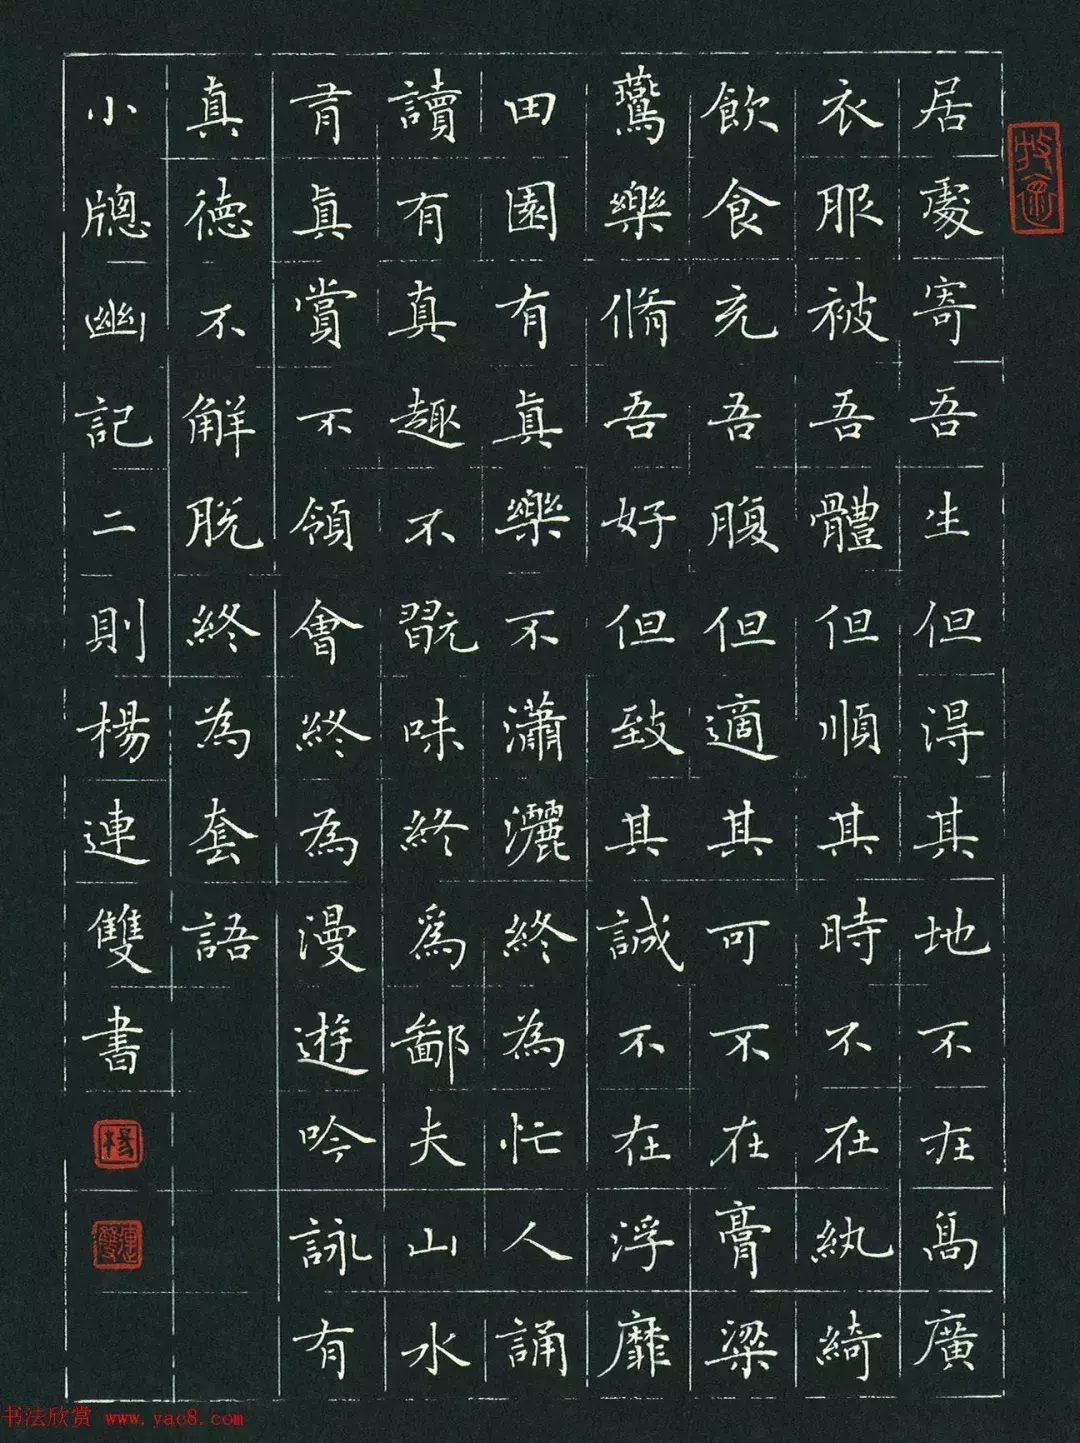 居處寄吾生但得其地不在高廣
衣服被吾體但順其時不在紈綺
飲食充吾腹但適其可不在膏粱
鷰樂脩吾好但致其誠不在浮靡
田園有眞樂不瀟灑終為忙人誦
讀有真趣不翫味終爲鄙夫山水
有眞賞不領會終為漫遊吟詠有
真德不解脫終為套語
小牕幽記二則楊連雙書
楊
連雙
书法欣赏 www.yac8.com